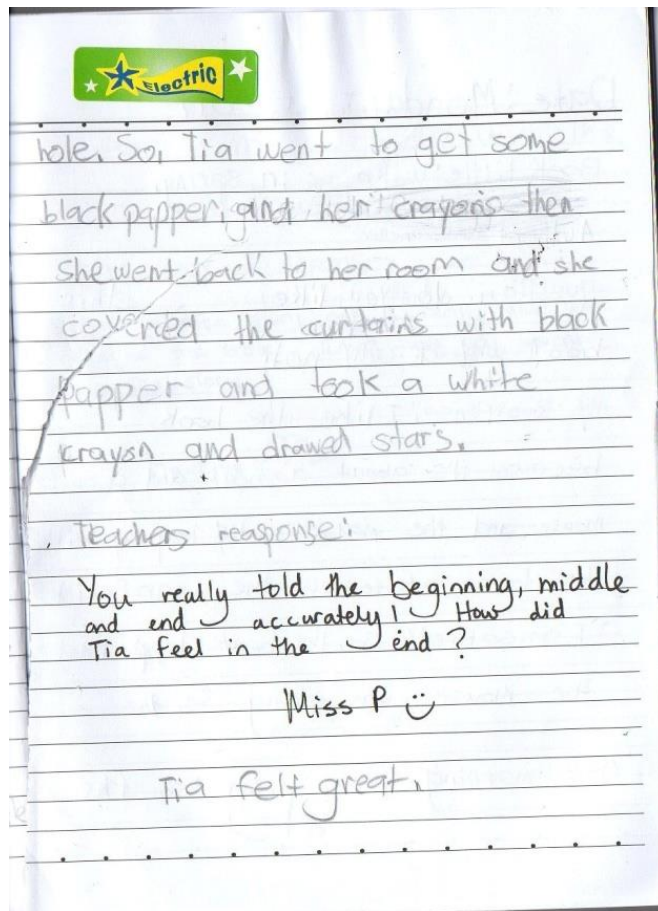 Electric
hole. So, Tia went to get some
black papper, and her crayons then
she went back to her room and she
covered the curtains with black
papper and took a white
crayon and drawed stars.
Teachers reasponse:
You really told the beginning, middle
and end accurately! How did
Tia feel in the end?
Miss P
Tia felt great.